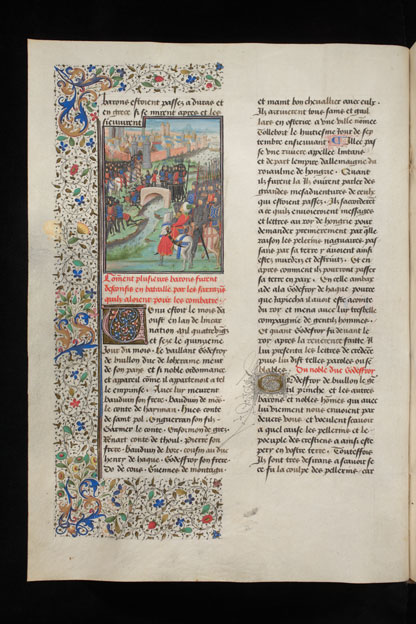 barons estoient passez a duras et
en grece si se mirent apres et les
sieuuirent
Cõment plusieurs barons furent
desconfis en bataille par les sarrasins
quilz aloient pour les combatre
Enu estoit le mois da
oust en lan de lincar
nation mil quatrebĩgs
et seze le quinzieme
Jour du mois. Le vaillant Godefroy
de buillon duc de lohraine meut
de son pays et si noble ordonnance
et appareil cõme il appartenoit a tel
le emprinse. Auec lui meurent
bauduin son frere. bauduin de mõs
le conte de haynnau. Hues conte
de saint pol. Enguerran son filz.
Garnier le conte. Regnart conte de thoul. Pierre son
frere. bauduin de bore. cousin au duc
henry de hache. Godeffroy son frere.
Do de cous. Guennes de montagu.
et maint bon cheuallier auec eulx.
Ilz arriuerent tous sains et gail
lars en osterice a vne ville nõmee
Tollebort le huitiesme Jour de sep
tembre ensieuuant. Illec pas
se vne riuiere appellee lintans
et depart lempire dallemaigne du
royaulme de hongrie. Quant
ilz furent la ilz ouirent parler des
grandes mesaduentures de ceulx
qui estoient passez. Ilz saccorderẽt
a ce quilz enuoieroient messages
et lettres au roy de hongrie pour
demander premierement par q̃lle
raison les pelerins nagueres pas
sans par sa terre y auoient ainsi
este murdris et destruis. Et en
apres comment ilz pourroient passer
sa terre en paix. En celle ambax
ade ala Godefroy de hache pource
que la piecha il auoit este acointe
du roy et mena auec lui tresbelle
compaignie de gentilz hommes.
Et quant Godeffroy fu deuant le
roy apres la reuerence faitte. Il
lui presenta les lettres de credẽce
puis lui dist telles parolles ou sẽ
blables. Du noble duc Godeffroy
Godeffroy de buillon le gẽ
til prinche et les autres
barons et nobles hõmes qui auec
lui viennent nous enuoient par
deuers vous et veulent scauoir
a quel cause les pellerins et le
poeuple des crestiens a ainsi este
pery en vostre terre. Touttesfois
Ilz sont tres desirans a scauoir se
ce fu la coulpe des pellerins. car